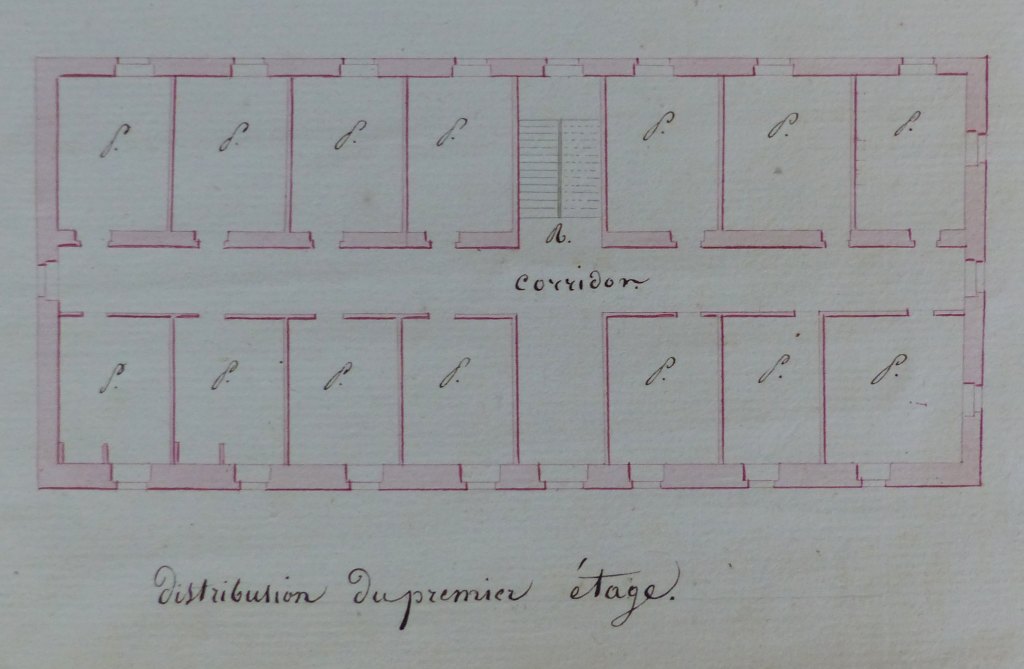 P. P. P. P. P. P. P.
R.
corridor
P. P. P. P. P. P. P.
distribution du premier étage.